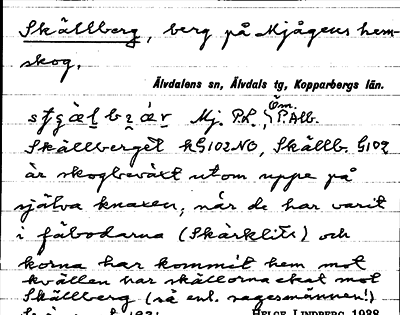 Skällberg, berg på Mjågens hem-
skog.
Älvdalens sn, Älvdals tg, Kopparbergs län.
Mj. P.L., Öm. P.Alb.
Skällberget kG102NO, Skällb. G102
är skogbeväxt utom uppe på
själva knaxen; når de har varit
i fäbodarna (Skärklits) och
korna har kommit hem mot
kvällen har skällorna ekat mot
Skällberg (så enl. sagesmännen!)
HELGE LINDBERG 1938